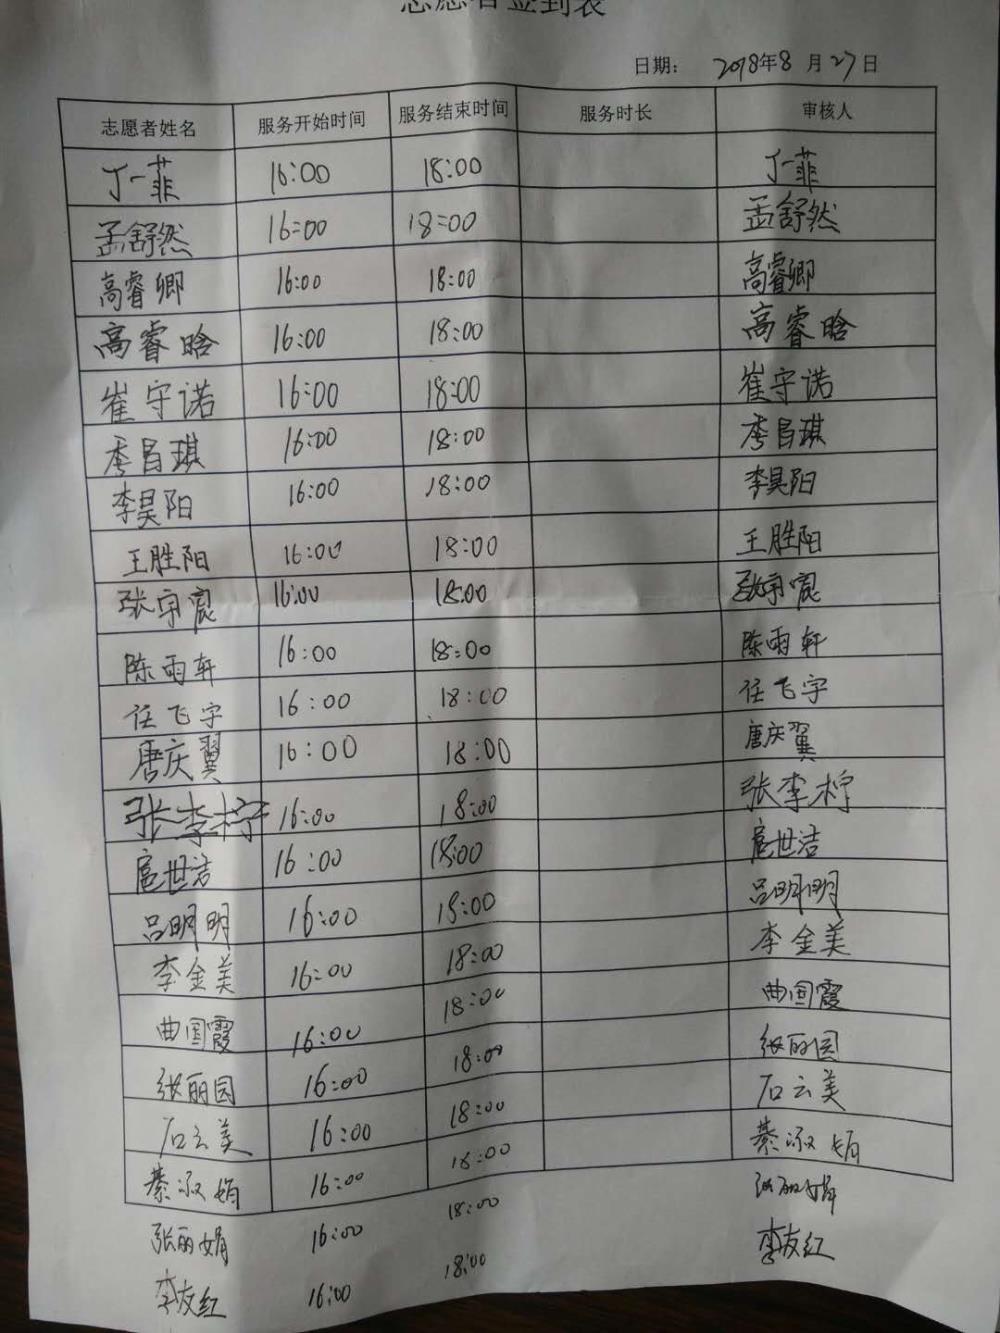 志愿者签到表
日期： 2018年8月27日
志愿者姓名 服务开始时间 服务结束时间 服务时长 审核人
丁一菲 16:00 18:00 丁一菲
孟舒然 16:00 18:00 孟舒然
高睿卿 16:00 18:00 高睿卿
高睿晗 16:00 18:00 高睿晗
崔守诺 16:00 18:00 崔守诺
李昌琪 16:00 18:00 李昌琪
李昊阳 16:00 18:00 李昊阳
王胜阳 16:00 18:00 王胜阳
张宇宸 16:00 18:00 张宇宸
陈雨轩 16:00 18:00 陈雨轩
任飞宇 16:00 18:00 任飞宇
唐庆翼 16:00 18:00 唐庆翼
张李柠 16:00 18:00 张李柠
扈世洁 16:00 18:00 扈世洁
吕明明 16:00 18:00 吕明明
李金美 16:00 18:00 李金美
曲国霞 16:00 18:00 曲国霞
张丽园 16:00 18:00 张丽园
石云美 16:00 18:00 石云美
綦淑娟 16:00 18:00 綦淑娟
张丽娟 16:00 18:00 张丽娟
李友红 16:00 18:00 李友红